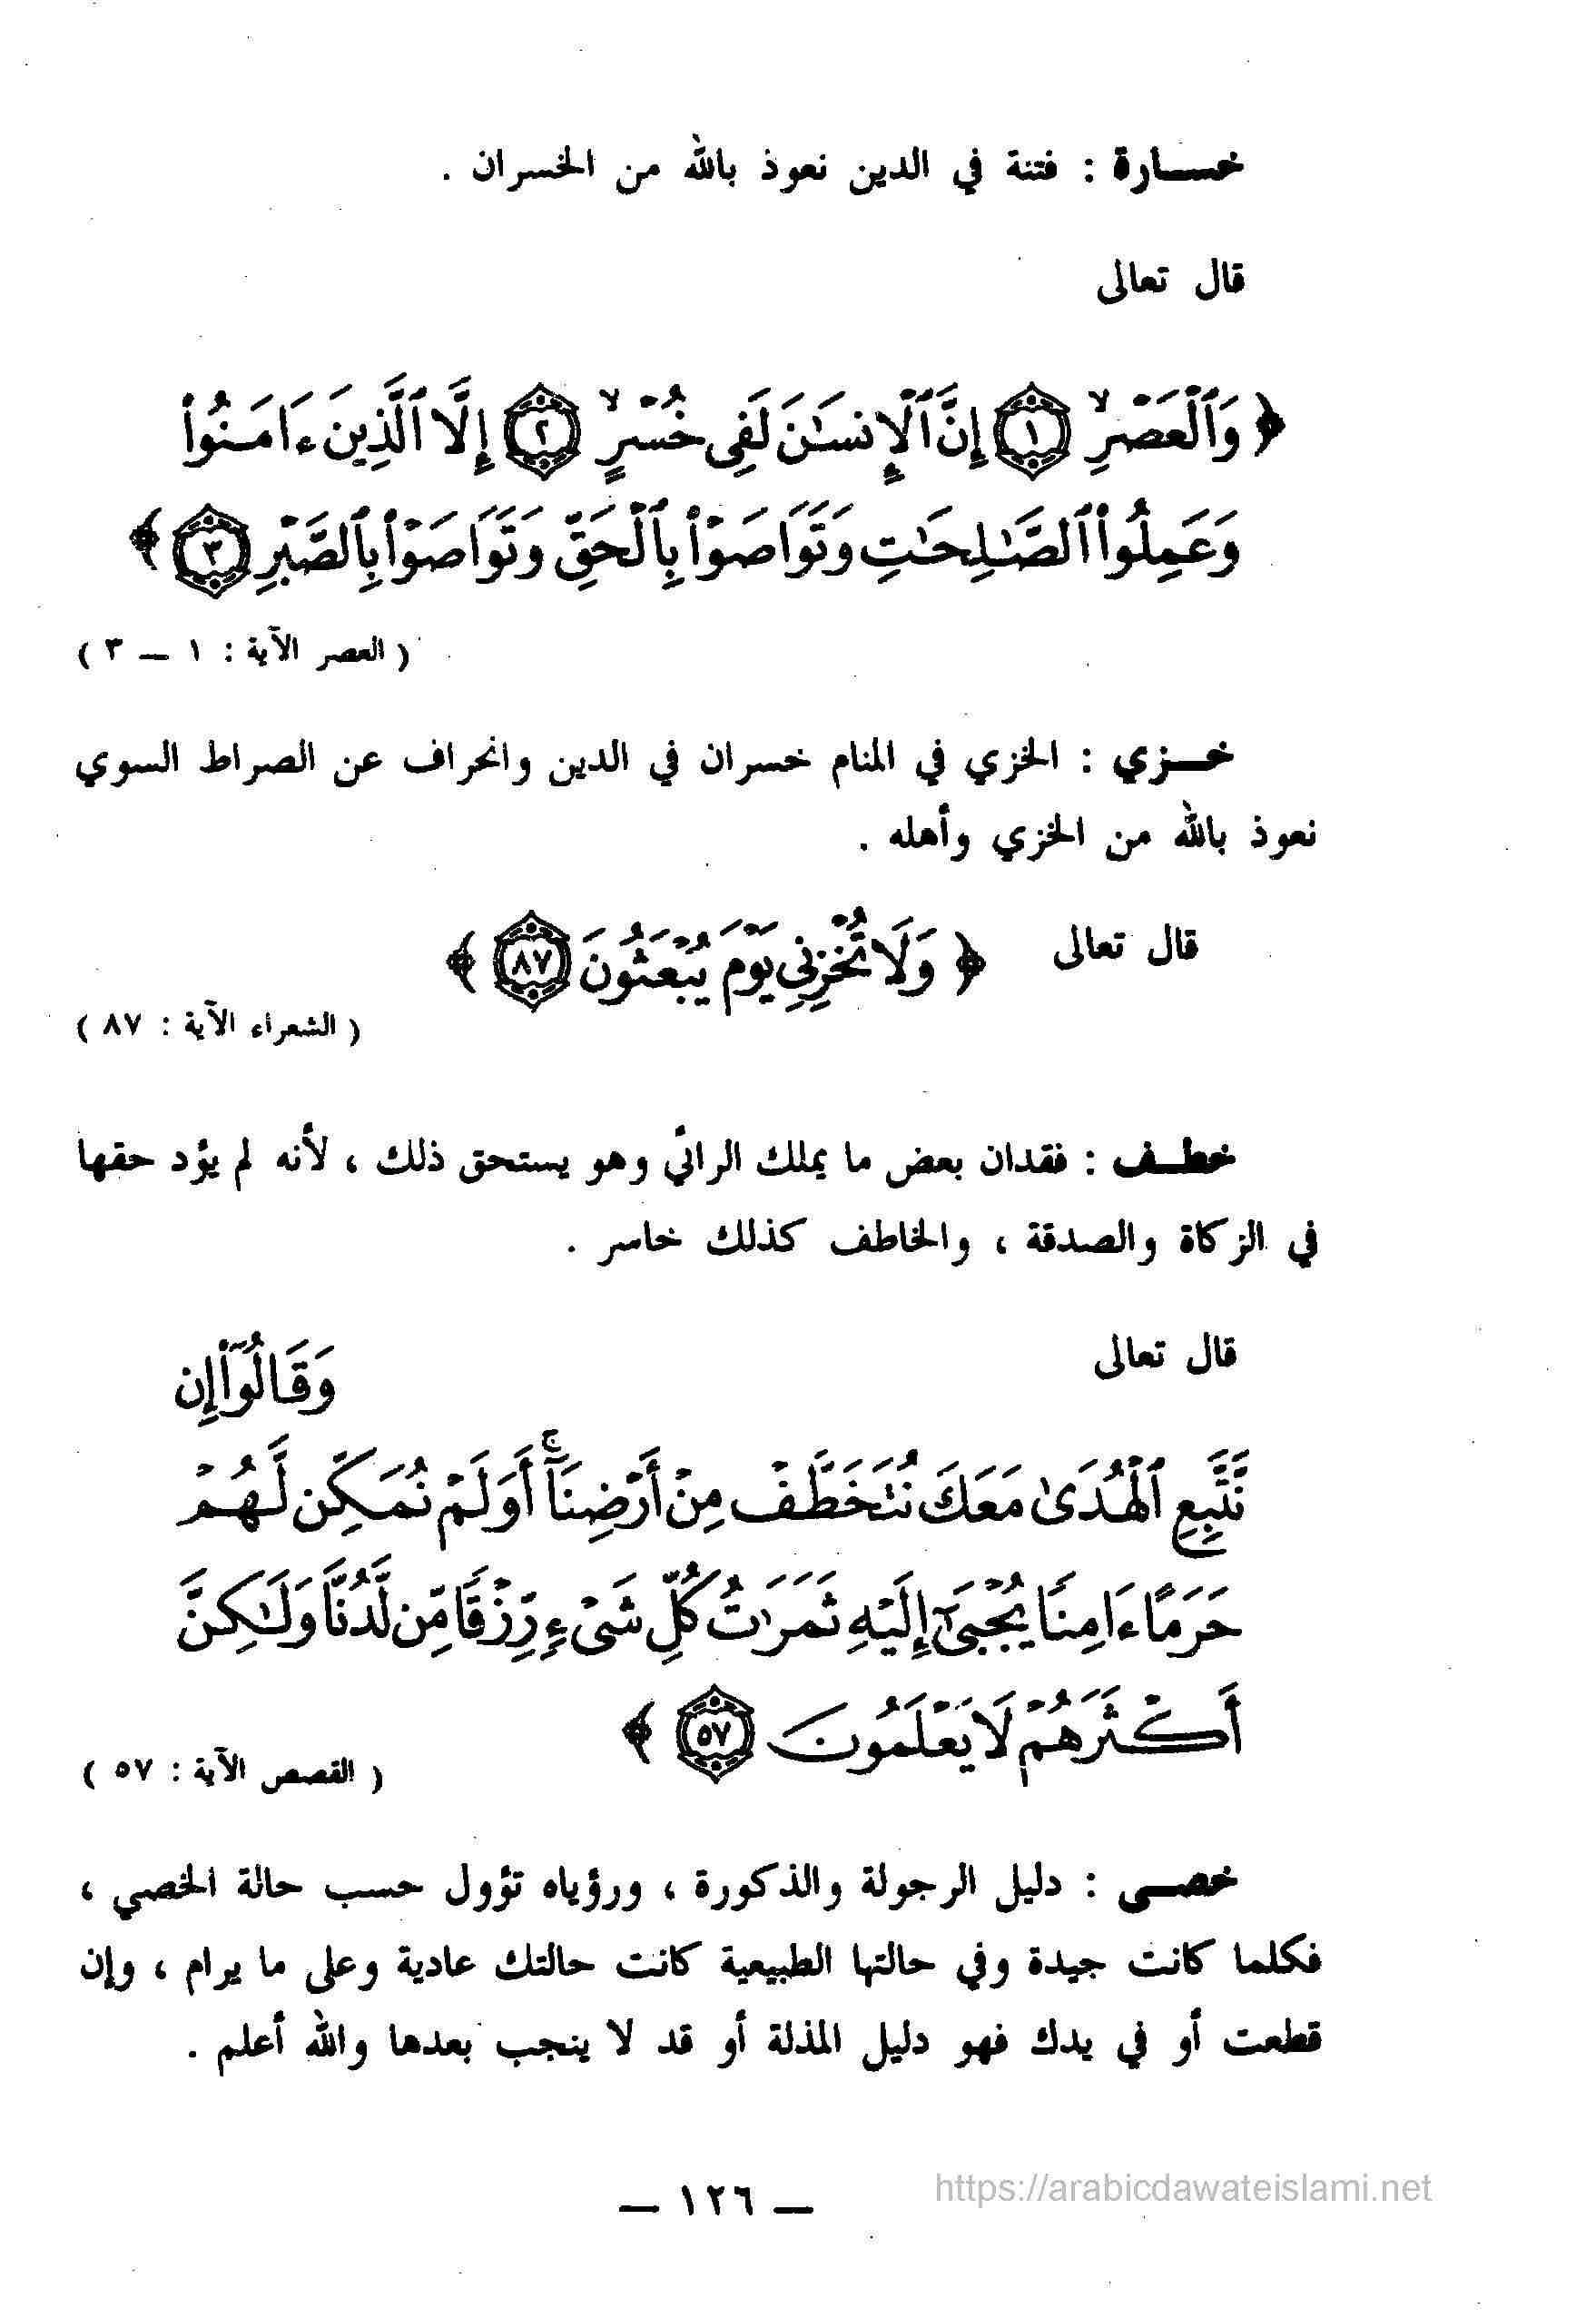 خسارة : فتنة في الدين نعوذ بالله من الخسران .
قال تعالى
﴿ وَٱلۡعَصۡرِ ۙ ١ إِنَّ ٱلۡإِنسَٰنَ لَفِى خُسۡرٍ ۙ ٢ إِلَّا ٱلَّذِينَ ءَامَنُوا۟
وَعَمِلُوا۟ ٱلصَّٰلِحَٰتِ وَتَوَاصَوۡا۟ بِٱلۡحَقِّ وَتَوَاصَوۡا۟ بِٱلصَّبۡرِ ٣ ﴾
( العصر الآية : ١ — ٣ )
خزي : الخزي في المنام خسران في الدين وانحراف عن الصراط السوي
نعوذ بالله من الخزي وأهله .
قال تعالى ﴿ وَلَا تُخۡزِنِى يَوۡمَ يُبۡعَثُونَ ٨٧ ﴾
( الشعراء الآية : ٨٧ )
خطف : فقدان بعض ما يملك الرائي وهو يستحق ذلك ، لأنه لم يؤد حقها
في الزكاة والصدقة ، والخاطف كذلك خاسر .
قال تعالى وَقَالُوٓا۟ إِن
نَّتَّبِعِ ٱلۡهُدَىٰ مَعَكَ نُتَخَطَّفۡ مِنۡ أَرۡضِنَآ ۚ أَوَلَمۡ نُمَكِّن لَّهُمۡ
حَرَمًا ءَامِنًا يُجۡبَىٰٓ إِلَيۡهِ ثَمَرَٰتُ كُلِّ شَىۡءٍ رِّزۡقًا مِّن لَّدُنَّا وَلَٰكِنَّ
أَكۡثَرَهُمۡ لَا يَعۡلَمُونَ ٥٧ ﴾
( القصص الآية : ٥٧ )
خصى : دليل الرجولة والذكورة ، ورؤياه تؤول حسب حالة الخصي ،
فكلما كانت جيدة وفي حالتها الطبيعية كانت حالتك عادية وعلى ما يرام ، وإن
قطعت أو في يدك فهو دليل المذلة أو قد لا ينجب بعدها والله أعلم .
— ١٢٦ —
https://arabicdawateislami.net